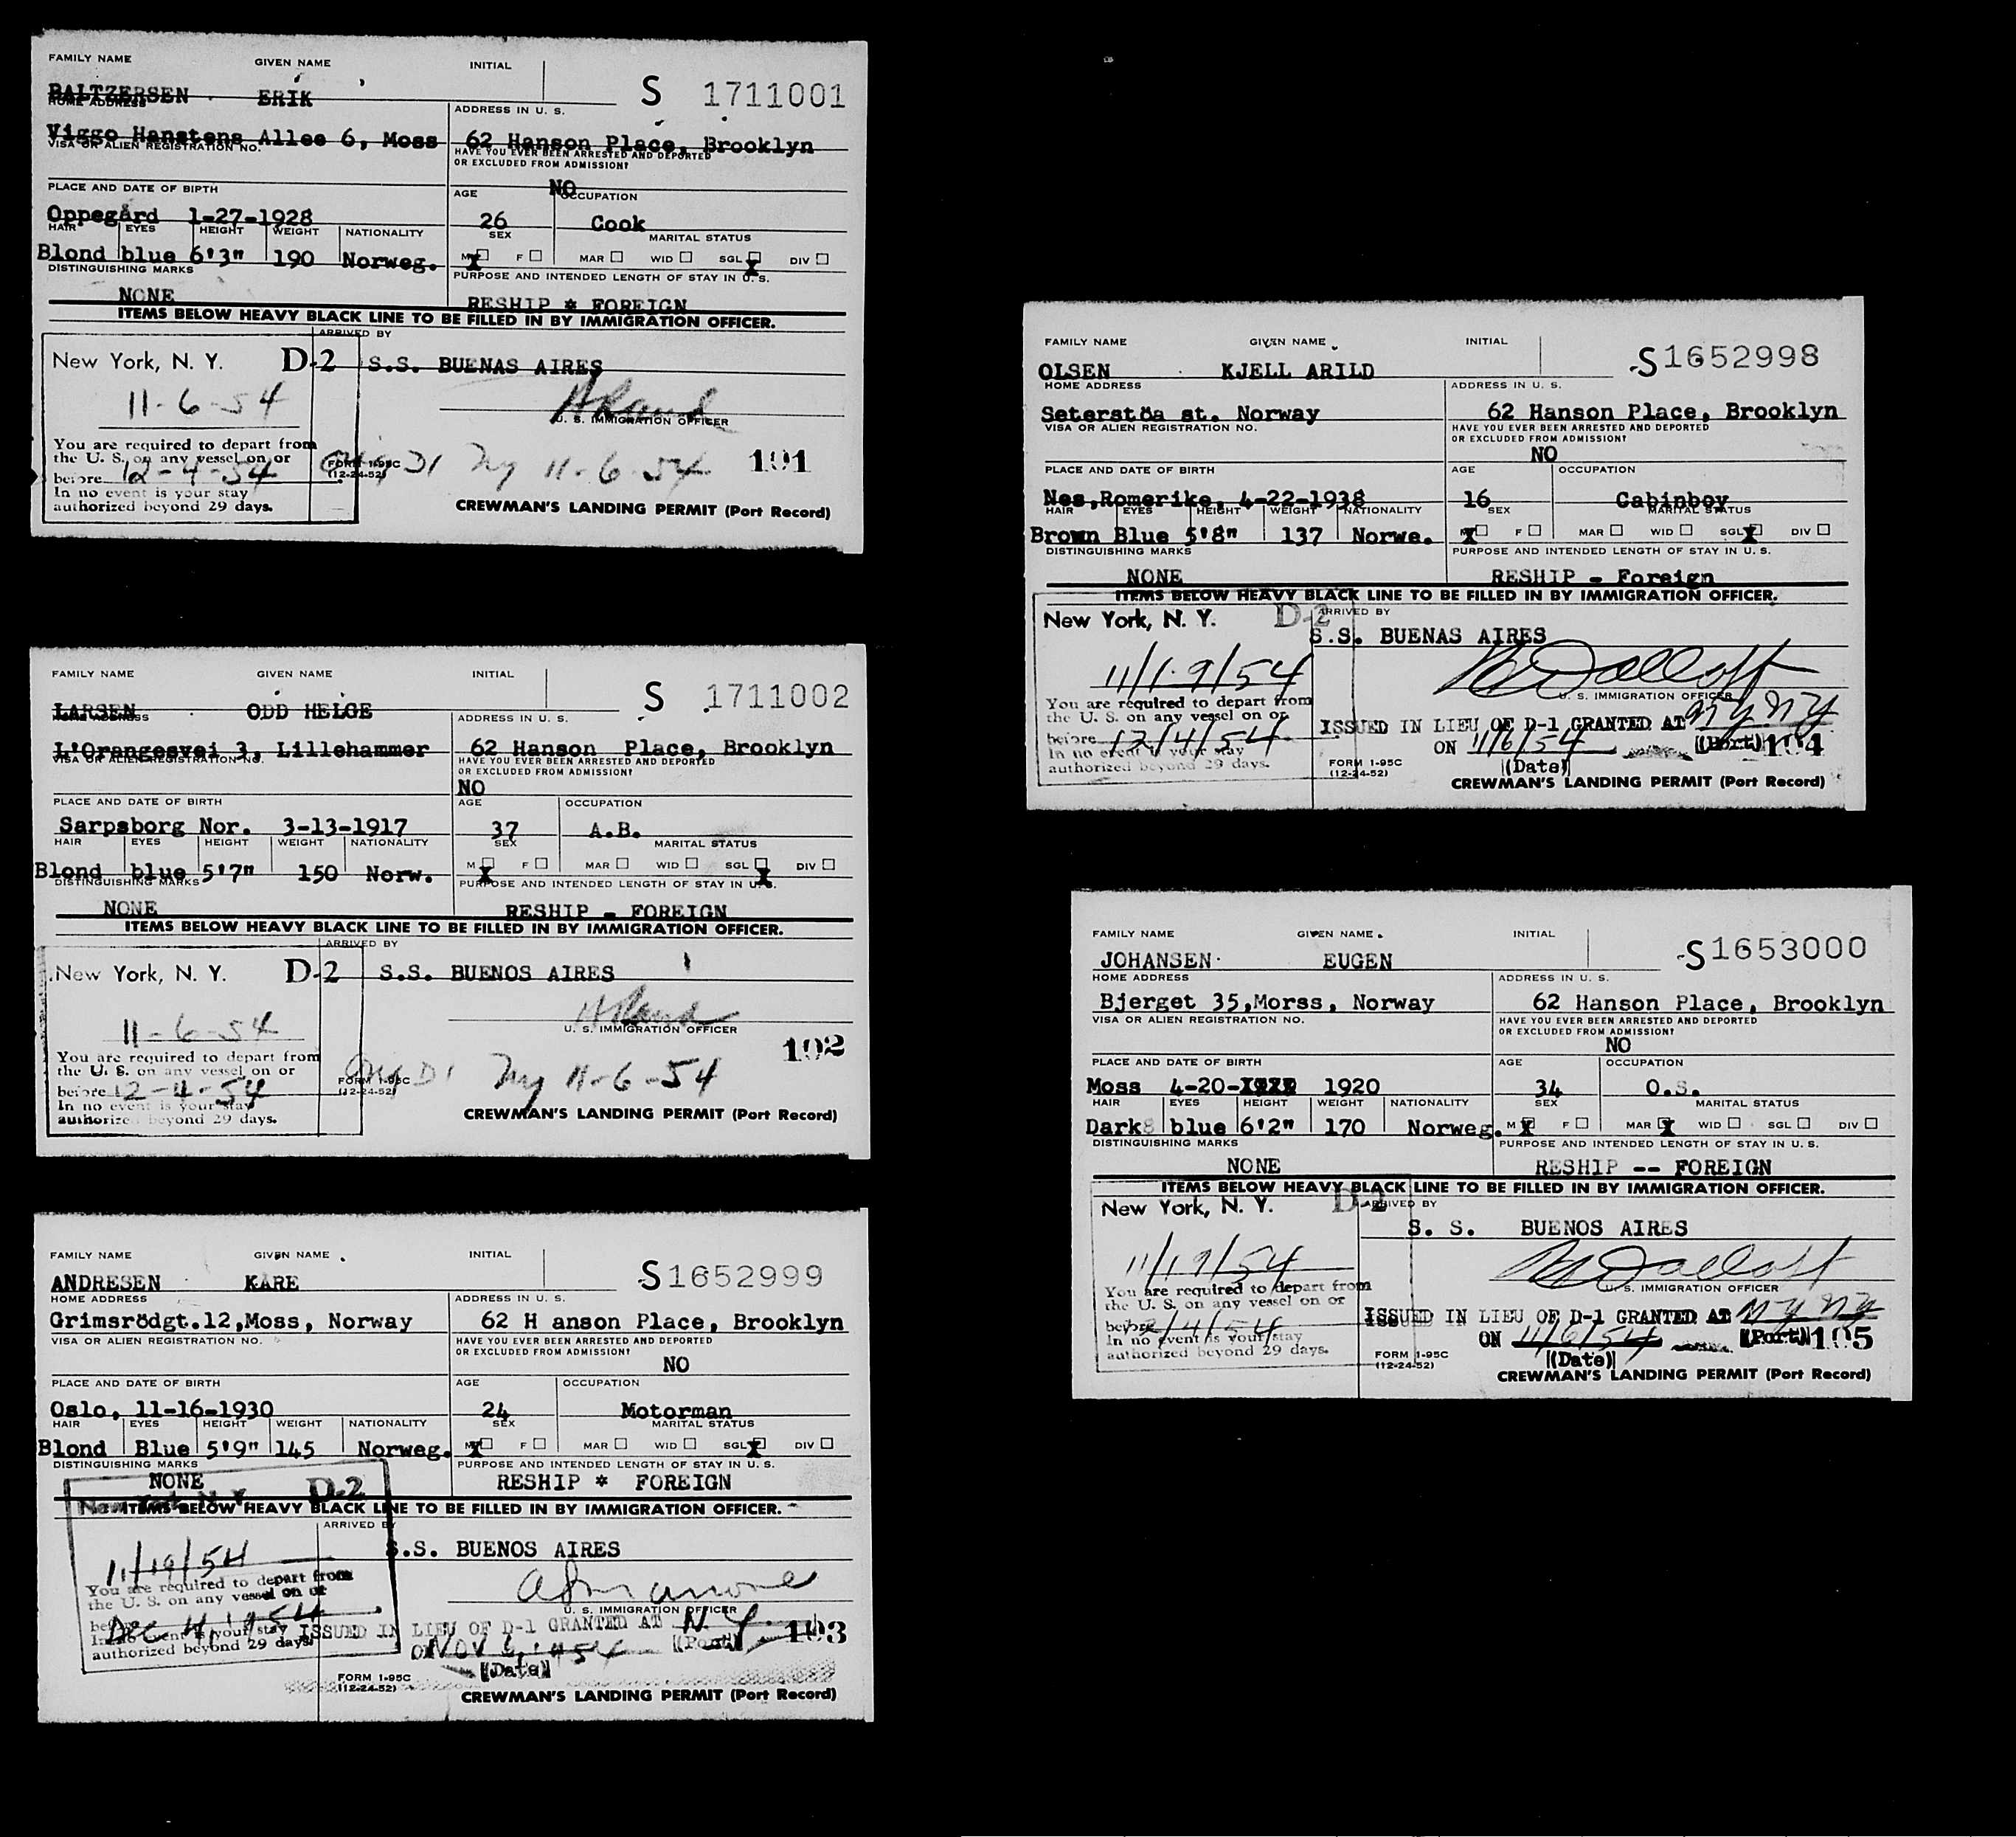 FAMILY NAME GIVEN NAME INITIAL
S 1711001
BALTZERSEN ERIK
HOME ADDRESS ADDRESS IN U. S.
Viggo Hanstens Allee 6, Moss 62 Hanson Place, Brooklyn
VISA OR ALIEN REGISTRATION NO. HAVE YOU EVER BEEN ARRESTED AND DEPORTED
OR EXCLUDED FROM ADMISSION?
NO
PLACE AND DATE OF BIRTH AGE OCCUPATION
Oppegård 1-27-1928 26 Cook
HAIR EYES HEIGHT WEIGHT NATIONALITY SEX MARITAL STATUS
Blond blue 6'3" 190 Norweg. M X F MAR WID SGL X DIV
DISTINGUISHING MARKS PURPOSE AND INTENDED LENGTH OF STAY IN U. S.
NONE RESHIP * FOREIGN
ITEMS BELOW HEAVY BLACK LINE TO BE FILLED IN BY IMMIGRATION OFFICER.
ARRIVED BY
New York, N. Y. D-2 S.S. BUENAS AIRES
11-6-54
U. S. IMMIGRATION OFFICER
You are required to depart from
the U. S. on any vessel on or
before 12-4-54
In no event is your stay
authorized beyond 29 days.
FORM I-95C
(12-24-52)
D1 NY 11-6-54 191
CREWMAN'S LANDING PERMIT (Port Record)
FAMILY NAME GIVEN NAME INITIAL
S 1711002
LARSEN ODD HELGE
HOME ADDRESS ADDRESS IN U. S.
L'Orangesvei 3, Lillehammer 62 Hanson Place, Brooklyn
VISA OR ALIEN REGISTRATION NO. HAVE YOU EVER BEEN ARRESTED AND DEPORTED
OR EXCLUDED FROM ADMISSION?
NO
PLACE AND DATE OF BIRTH AGE OCCUPATION
Sarpsborg Nor. 3-13-1917 37 A.B.
HAIR EYES HEIGHT WEIGHT NATIONALITY SEX MARITAL STATUS
Blond blue 5'7" 150 Norw. M X F MAR WID SGL X DIV
DISTINGUISHING MARKS PURPOSE AND INTENDED LENGTH OF STAY IN U. S.
NONE RESHIP - FOREIGN
ITEMS BELOW HEAVY BLACK LINE TO BE FILLED IN BY IMMIGRATION OFFICER.
ARRIVED BY
New York, N. Y. D-2 S.S. BUENOS AIRES
11-6-54
U. S. IMMIGRATION OFFICER
192
You are required to depart from
the U. S. on any vessel on or
before 12-4-54
In no event is your stay
authorized beyond 29 days.
FORM I-95C
(12-24-52)
D1 NY 11-6-54
CREWMAN'S LANDING PERMIT (Port Record)
FAMILY NAME GIVEN NAME INITIAL
S1652999
ANDRESEN KARE
HOME ADDRESS ADDRESS IN U. S.
Grimsrödgt.12,Moss, Norway 62 H anson Place, Brooklyn
VISA OR ALIEN REGISTRATION NO. HAVE YOU EVER BEEN ARRESTED AND DEPORTED
OR EXCLUDED FROM ADMISSION?
NO
PLACE AND DATE OF BIRTH AGE OCCUPATION
Oslo, 11-16-1930 24 Motorman
HAIR EYES HEIGHT WEIGHT NATIONALITY SEX MARITAL STATUS
Blond Blue 5'9" 145 Norweg. M X F MAR WID SGL X DIV
DISTINGUISHING MARKS PURPOSE AND INTENDED LENGTH OF STAY IN U. S.
NONE RESHIP * FOREIGN
D-2
ITEMS BELOW HEAVY BLACK LINE TO BE FILLED IN BY IMMIGRATION OFFICER.
ARRIVED BY
S.S. BUENOS AIRES
11/19/54
U. S. IMMIGRATION OFFICER
You are required to depart from
the U. S. on any vessel on or
before Dec 4, 1954
In no event is your stay
authorized beyond 29 days.
ISSUED IN LIEU OF D-1 GRANTED AT N.Y.
ON NOV 6, 1954 (Port) 193
(Date)
FORM I-95C
(12-24-52)
CREWMAN'S LANDING PERMIT (Port Record)
FAMILY NAME GIVEN NAME INITIAL
S1652998
OLSEN KJELL ARILD
HOME ADDRESS ADDRESS IN U. S.
Seterstöa st. Norway 62 Hanson Place, Brooklyn
VISA OR ALIEN REGISTRATION NO. HAVE YOU EVER BEEN ARRESTED AND DEPORTED
OR EXCLUDED FROM ADMISSION?
NO
PLACE AND DATE OF BIRTH AGE OCCUPATION
Nes,Romerike, 4-22-1938 16 Cabinboy
HAIR EYES HEIGHT WEIGHT NATIONALITY SEX MARITAL STATUS
Brown Blue 5'8" 137 Norwe. M X F MAR WID SGL X DIV
DISTINGUISHING MARKS PURPOSE AND INTENDED LENGTH OF STAY IN U. S.
NONE RESHIP - Foreign
ITEMS BELOW HEAVY BLACK LINE TO BE FILLED IN BY IMMIGRATION OFFICER.
New York, N. Y. D-2 ARRIVED BY
S.S. BUENAS AIRES
11/19/54
U. S. IMMIGRATION OFFICER
You are required to depart from
the U. S. on any vessel on or
before 12/4/54
In no event is your stay
authorized beyond 29 days.
ISSUED IN LIEU OF D-1 GRANTED AT NY NY
ON 11/6/54 (Port) 194
(Date)
FORM I-95C
(12-24-52)
CREWMAN'S LANDING PERMIT (Port Record)
FAMILY NAME GIVEN NAME INITIAL
S1653000
JOHANSEN EUGEN
HOME ADDRESS ADDRESS IN U. S.
Bjerget 35,Morss, Norway 62 Hanson Place, Brooklyn
VISA OR ALIEN REGISTRATION NO. HAVE YOU EVER BEEN ARRESTED AND DEPORTED
OR EXCLUDED FROM ADMISSION?
NO
PLACE AND DATE OF BIRTH AGE OCCUPATION
Moss 4-20- 1920 34 O.S.
HAIR EYES HEIGHT WEIGHT NATIONALITY SEX MARITAL STATUS
Dark blue 6'2" 170 Norweg. M X F MAR X WID SGL DIV
DISTINGUISHING MARKS PURPOSE AND INTENDED LENGTH OF STAY IN U. S.
NONE RESHIP -- FOREIGN
ITEMS BELOW HEAVY BLACK LINE TO BE FILLED IN BY IMMIGRATION OFFICER.
New York, N. Y. D-2 ARRIVED BY
S. S. BUENOS AIRES
11/19/54
U. S. IMMIGRATION OFFICER
You are required to depart from
the U. S. on any vessel on or
before 12/4/54
In no event is your stay
authorized beyond 29 days.
ISSUED IN LIEU OF D-1 GRANTED AT NY NY
ON 11/6/54 (Port) 195
(Date)
FORM I-95C
(12-24-52)
CREWMAN'S LANDING PERMIT (Port Record)